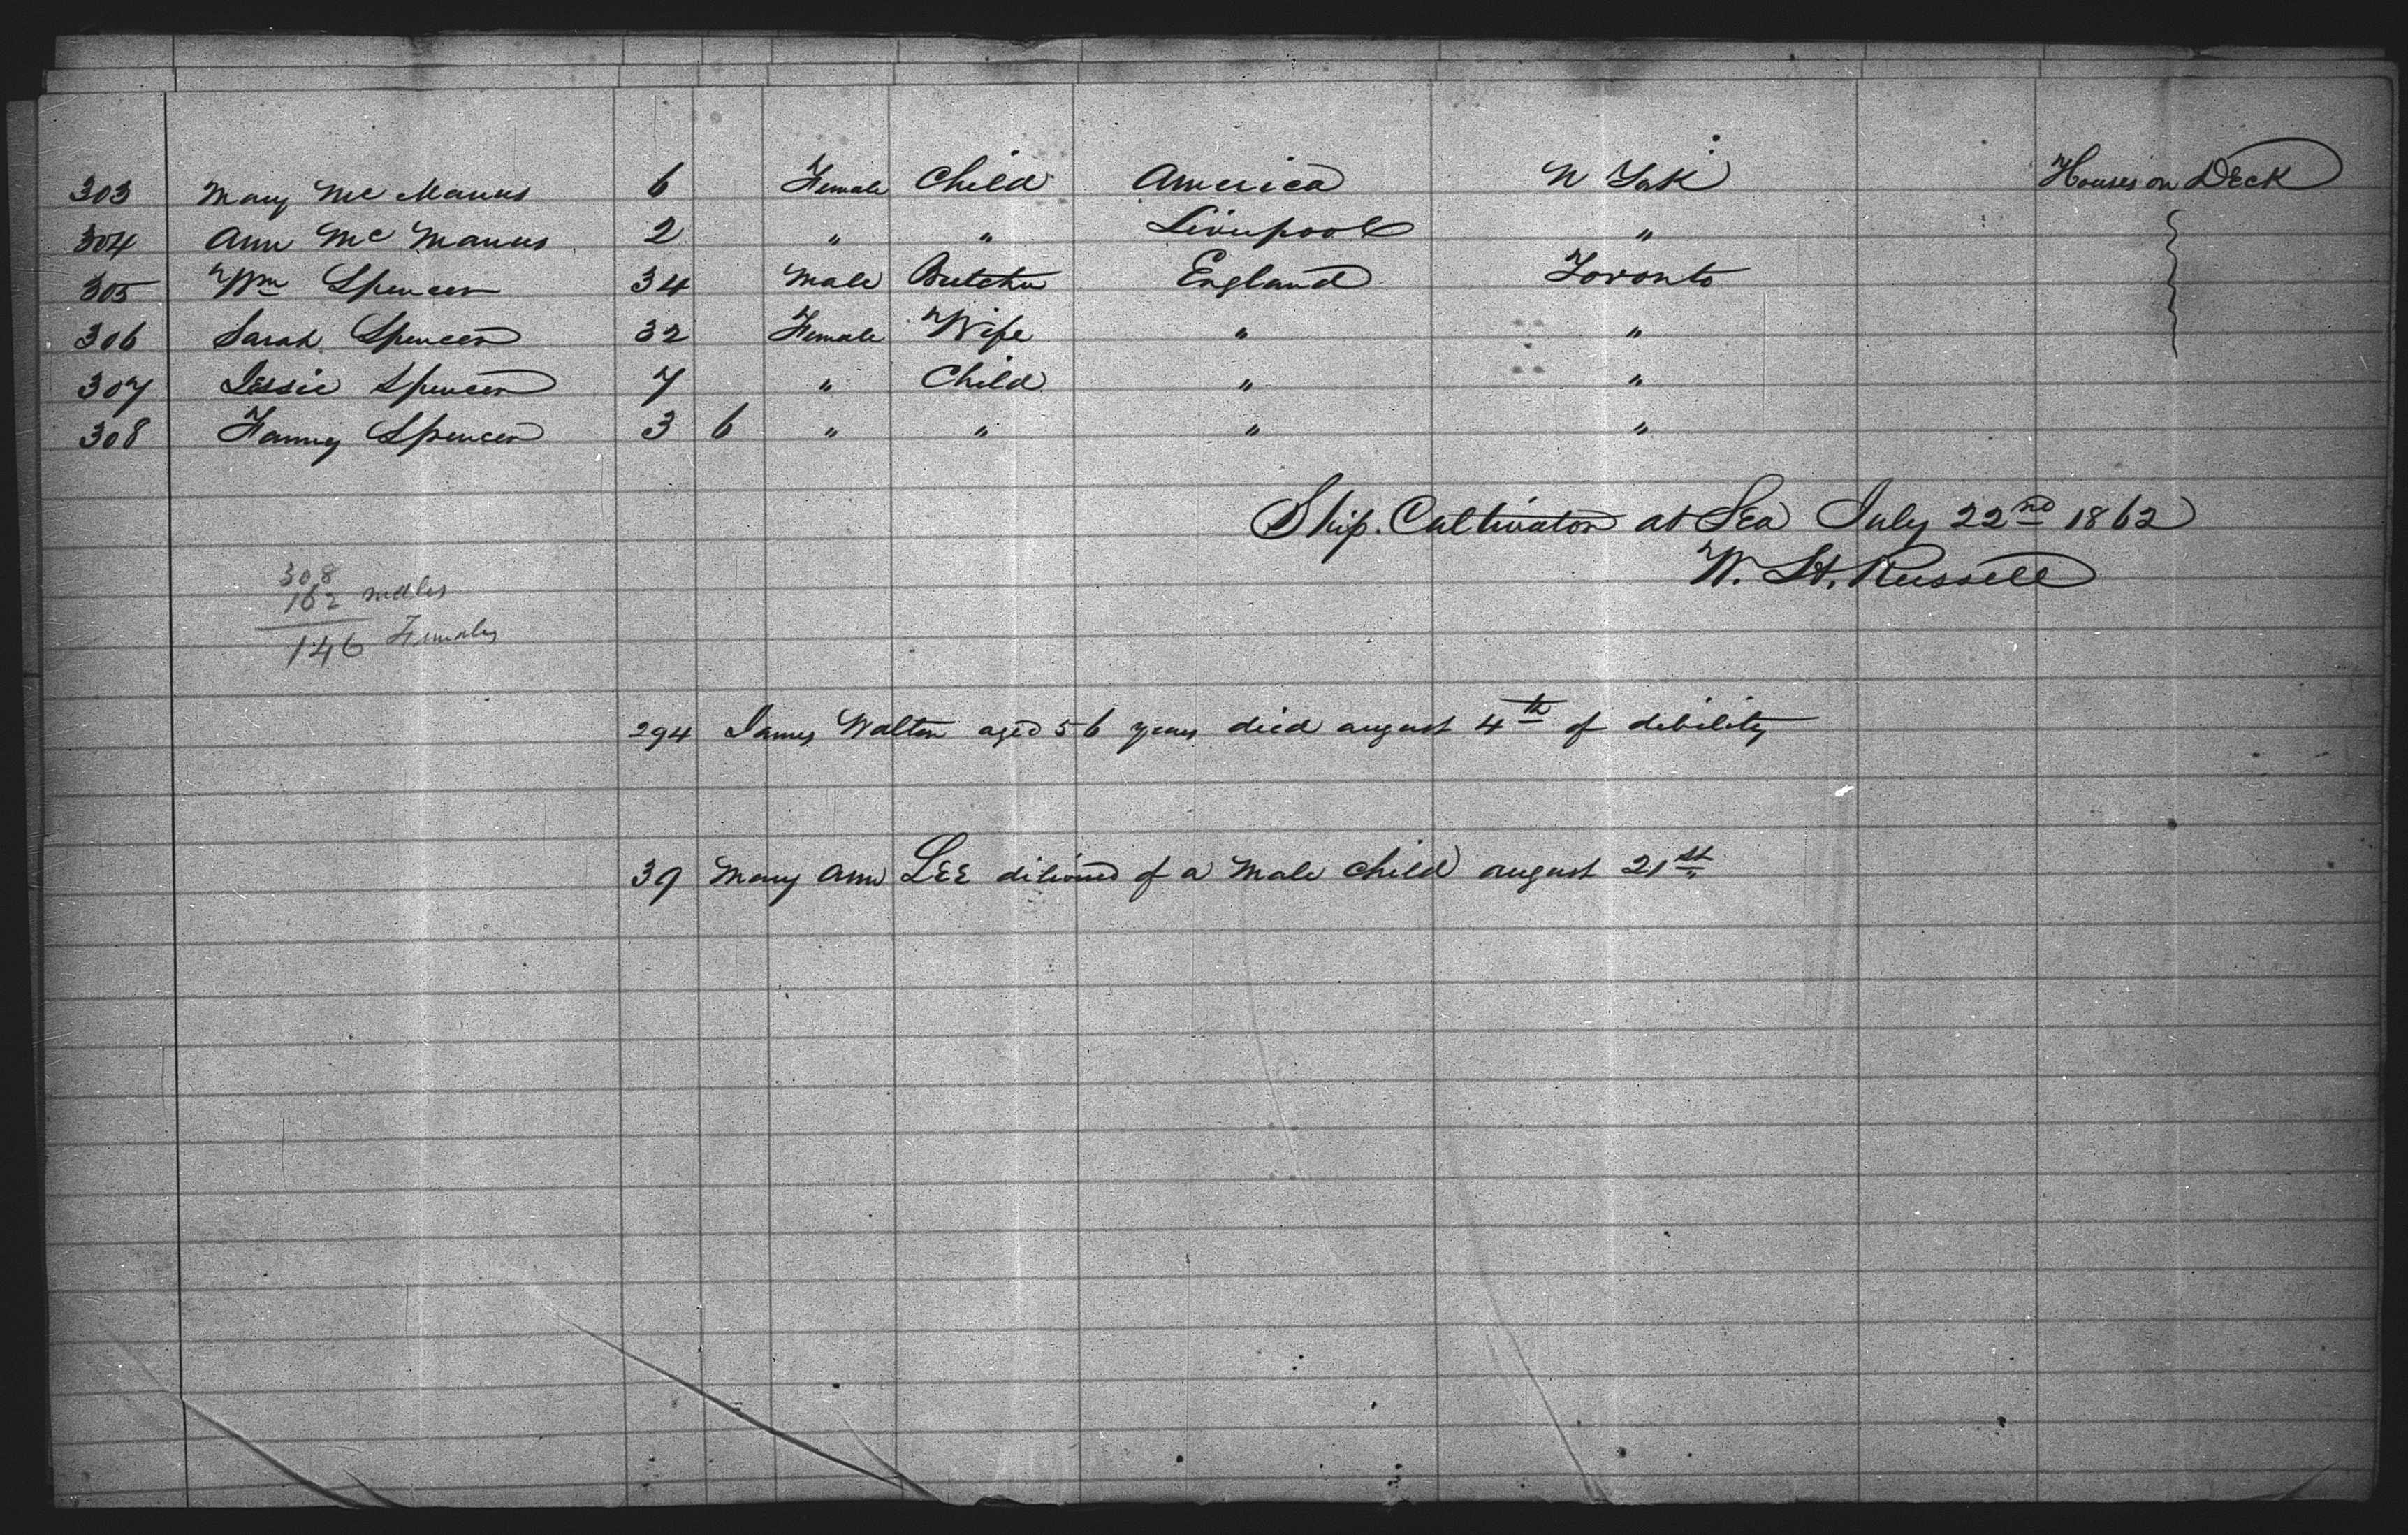 303 Mary Mc Manus 6 Female Child America N York Houses on Deck
304 Ann Mc Manus 2 " " Liverpool "
305 Wm Spencer 34 Male Butcher England Toronto
306 Sarah Spencer 32 Female Wife " "
307 Jessie Spencer 7 " Child " "
308 Fanny Spencer 3 6 " " " "
Ship. Cultivator at Sea July 22nd 1862
W. H. Russell
308
162 males
146 Females
294 James Walton aged 56 years died august 4th of debility
39 Mary Ann LEE of a Male child august 21st